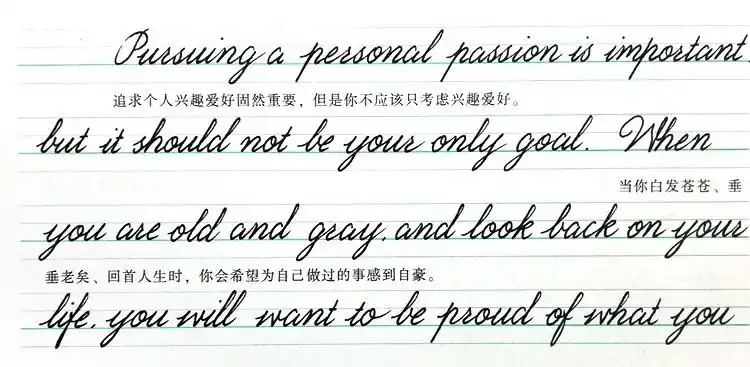 Pursuing a personal passion is important,
追求个人兴趣爱好固然重要，但是你不应该只考虑兴趣爱好。
but it should not be your only goal. When
当你白发苍苍、垂
you are old and gray, and look back on your
垂老矣、回首人生时，你会希望为自己做过的事感到自豪。
life, you will want to be proud of what you